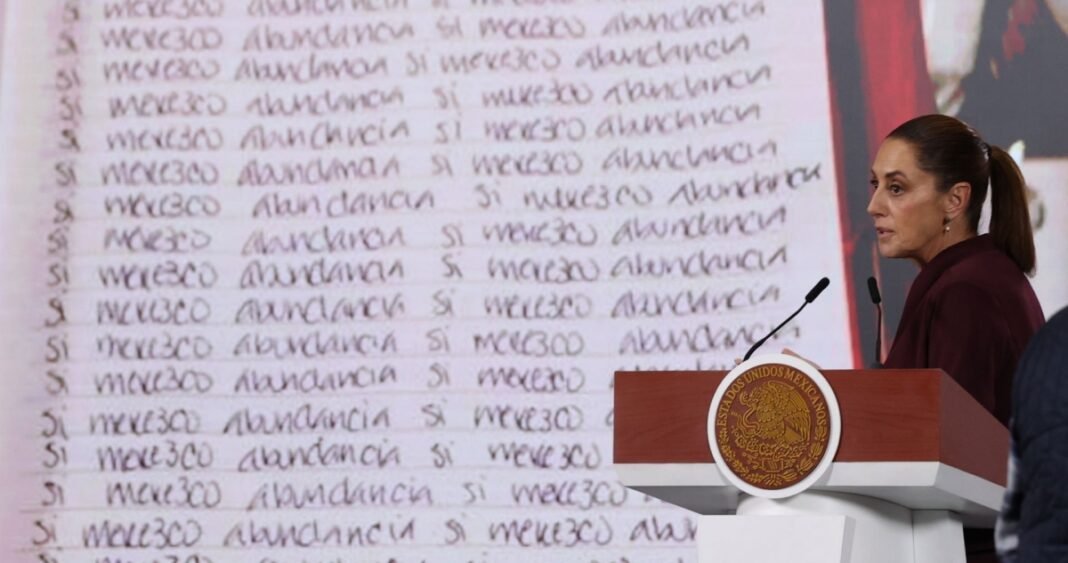 abundancia si mere3co abundancia
si mere3co abundancia si mere3co abundancia
si mere3co abundancia si mere3co abundancia
si mere3co abundancia si mere3co abundancia
si mere3co abundancia si mere3co abundancia
si mere3co abundancia si mere3co abundancia
si mere3co abundancia si mere3co abundancia
si mere3co abundancia si mere3co abundancia
si mere3co abundancia si mere3co abundancia
si mere3co abundancia si mere3co abundancia
si mere3co abundancia si mere3co abundancia
si mere3co abundancia si mere3co
si mere3co abundancia si mere3co
si mere3co abundancia si mere3co
si mere3co abundancia si mere3co
si mere3co abundancia si mere3co abun
ESTADOS UNIDOS MEXICANOS